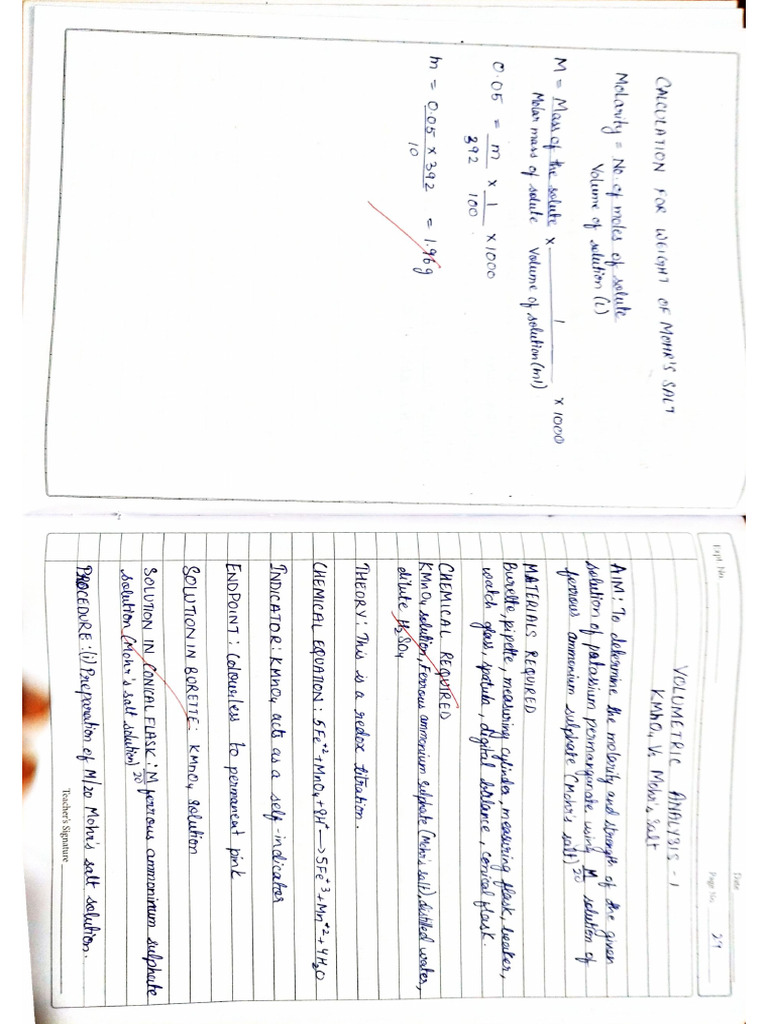 CALCULATION FOR WEIGHT OF MOHR'S SALT
Molarity = No. of moles of solute
Volume of solution (L)
M = Mass of the solute × 1 × 1000
Molar mass of solute Volume of solution (ml)
0.05 = m × 1 × 1000
392 100
m = 0.05 × 392 = 1.96 g
10
Expt. No.
Date
Page No. 29
VOLUMETRIC ANALYSIS - 1
KMnO4 Vs Mohr's Salt
AIM: To determine the molarity and strength of the given
solution of potassium permanganate using M/20 solution of
ferrous ammonium sulphate (Mohr's salt)
MATERIALS REQUIRED
Burette, pipette, measuring cylinder, measuring flask, beaker,
watch glass, spatula, digital balance, conical flask.
CHEMICAL REQUIRED
KMnO4 solution, Ferrous ammonium sulphate (Mohr's salt), distilled water,
dilute H2SO4
THEORY: This is a redox titration.
CHEMICAL EQUATION: 5Fe+2 + MnO4 + 8H+ → 5Fe+3 + Mn+2 + 4H2O
INDICATOR: KMnO4 acts as a self-indicator
ENDPOINT: Colourless to permanent pink
SOLUTION IN BORETTE: KMnO4 solution
SOLUTION IN CONICAL FLASK: M/20 ferrous ammonium sulphate
solution (Mohr's salt solution)
PROCEDURE: (i) Preparation of M/20 Mohr's salt solution.
Teacher's Signature